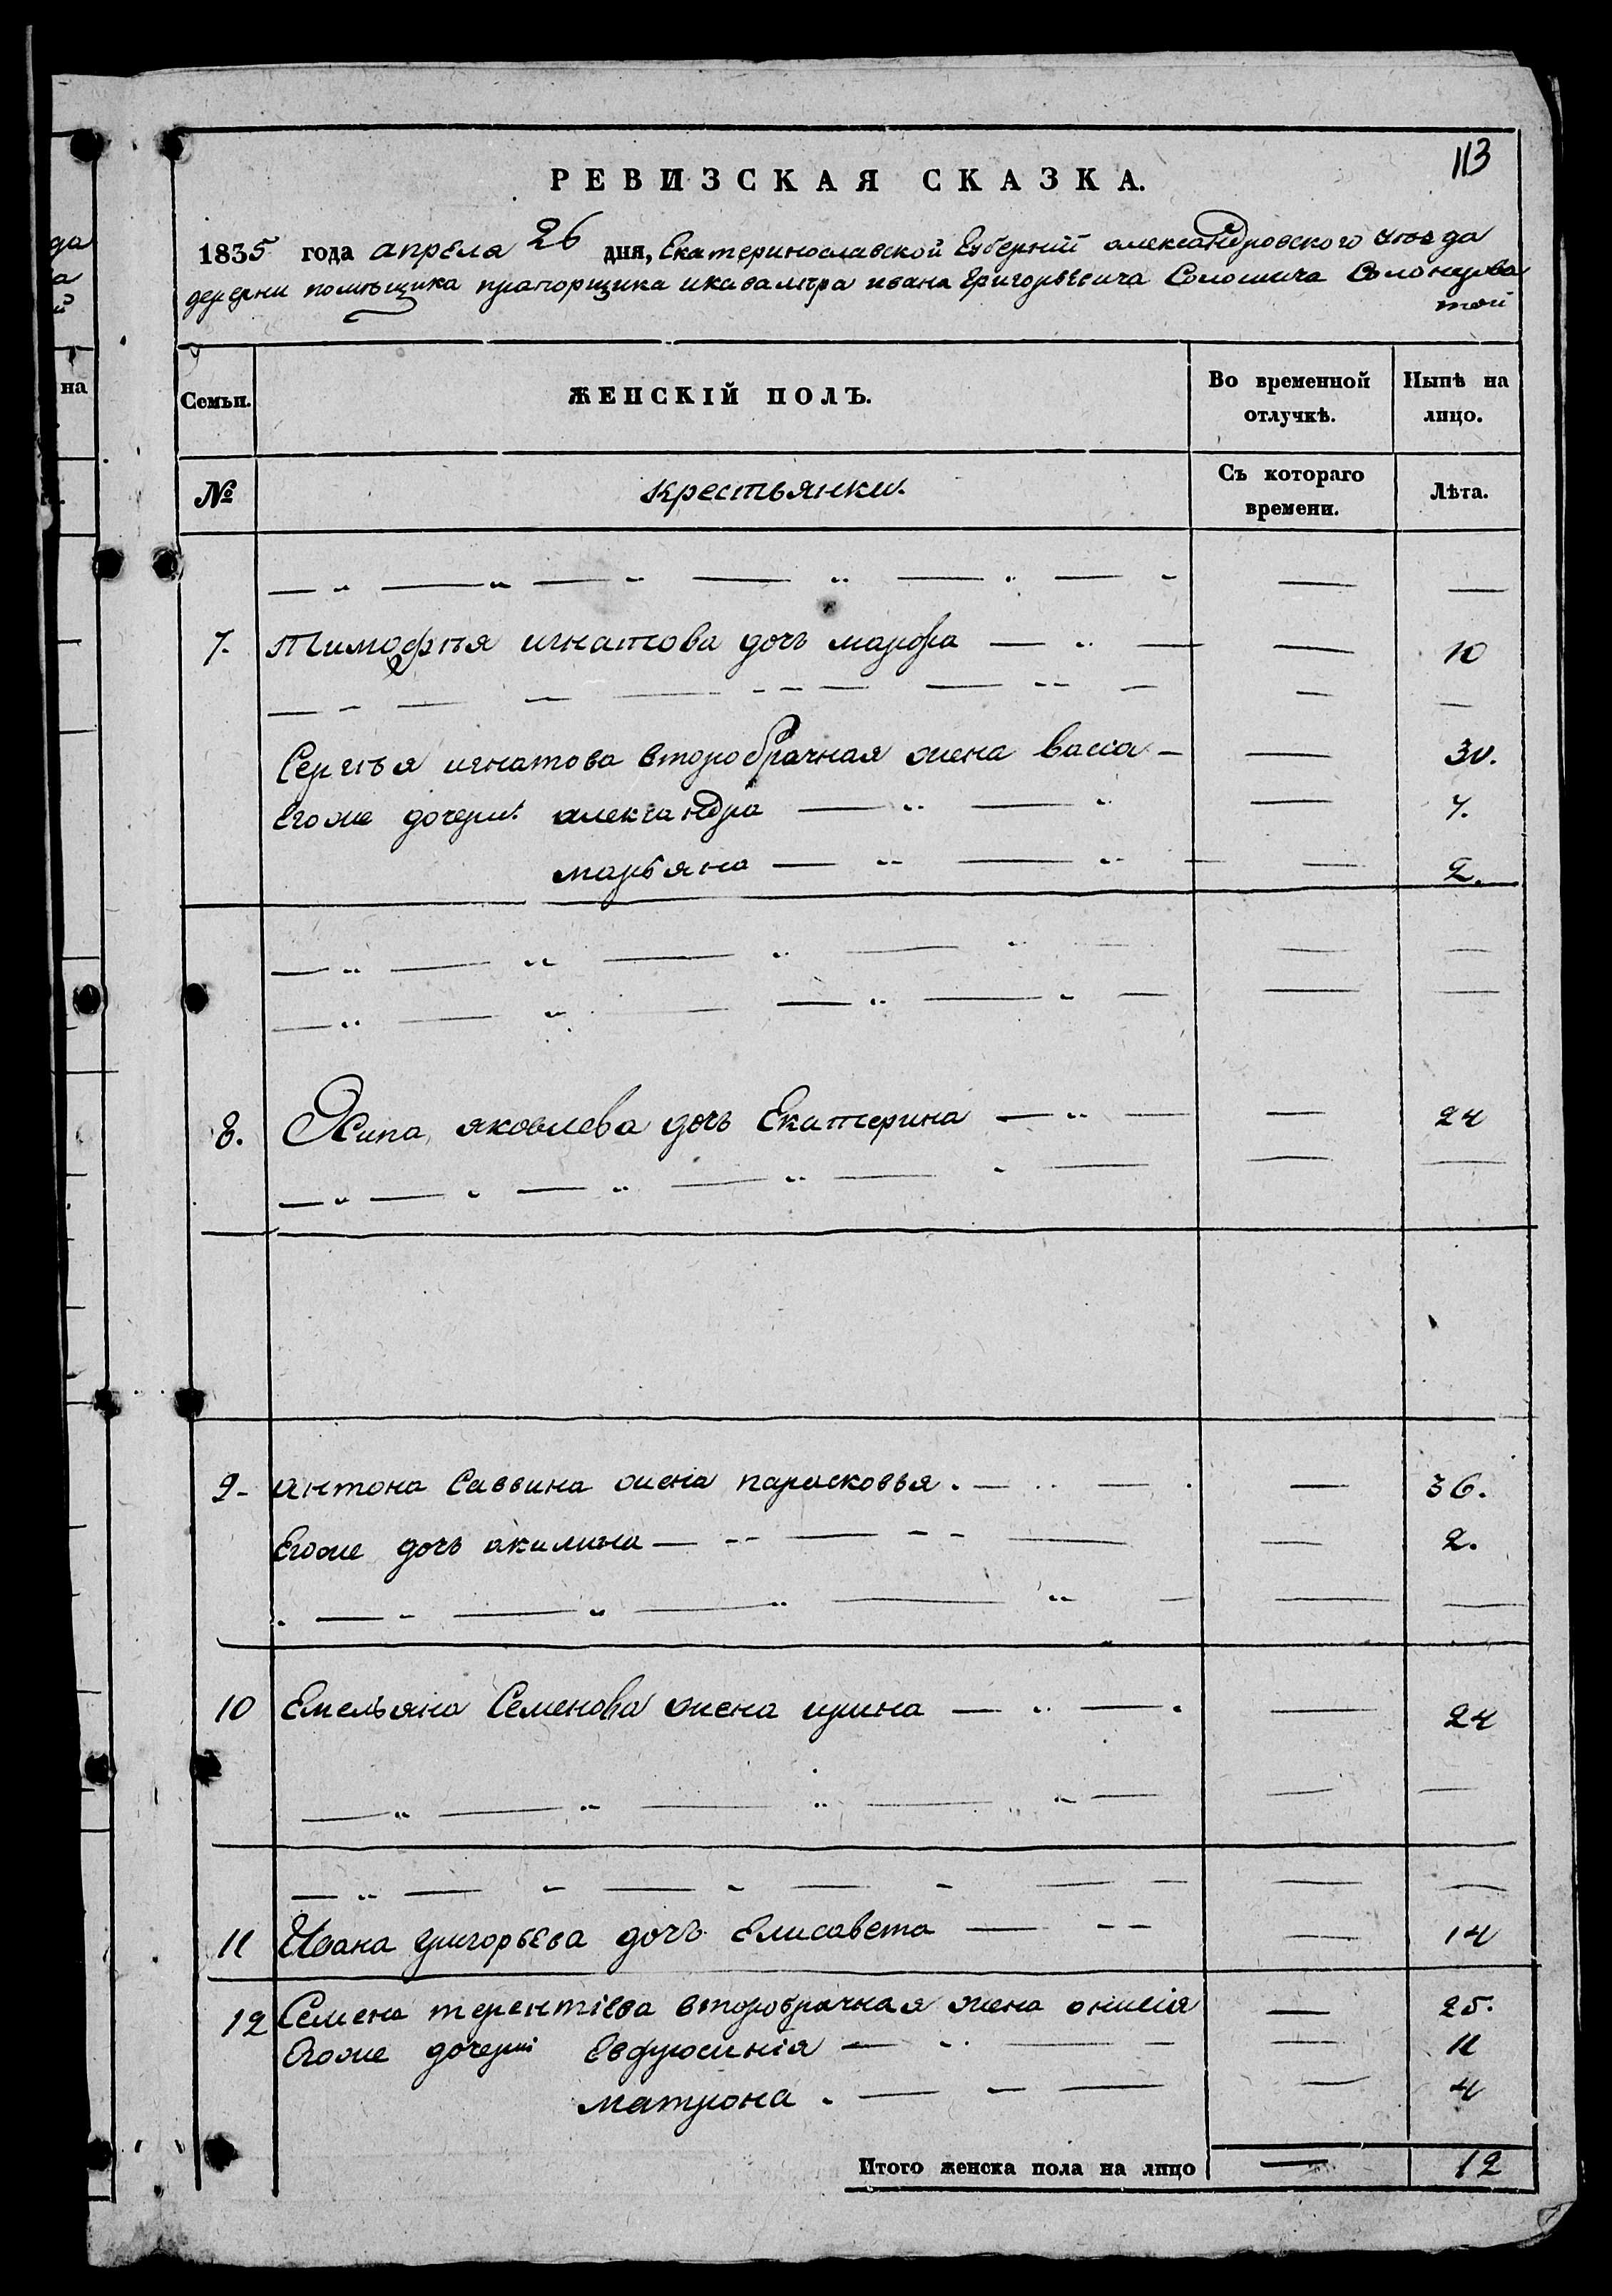 113
РЕВИЗСКАЯ СКАЗКА.
1835 года апреля 26 дня, Екатеринославской Губернии александровского уезда
деревни помѣщика прапорщика икавалера ивана Григорьевича Солошича Солонцова
той
Семьи. ЖЕНСКІЙ ПОЛЪ. Во временной отлучкѣ. Нынѣ на лицо.
№ крестьянки. Съ котораго времени. Лѣта.
7. Тимофѣя игнатова дочь марфа — 10
Сергѣя игнатова второбрачная жена васса — 30.
Егоже дочери александра — 7.
марьяна — 2.
8. Осипа яковлева дочь Екатерина — 24
9. антона Саввина жена парасковья. — 36.
Егоже дочь акилина — 2.
10 Емельяна Семенова жена ирина — 24
11 Ивана григорьева дочь Елисавета — 14
12 Семена терентіева второбрачная жена онисія — 25.
Егоже дочери Евфросинія — 11
матрона. — 4
Итого женска пола на лицо — 12
да
а
й
на